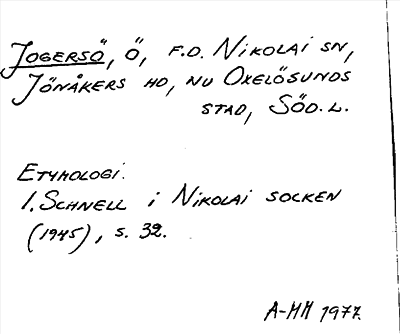 JOGERSÖ, Ö, F.D. NIKOLAI SN,
JÖNÅKERS HD, NU OXELÖSUNDS
STAD, SÖD. L.
ETYMOLOGI:
I. SCHNELL i NIKOLAI SOCKEN
(1945), S. 32.
A-MM 1977.